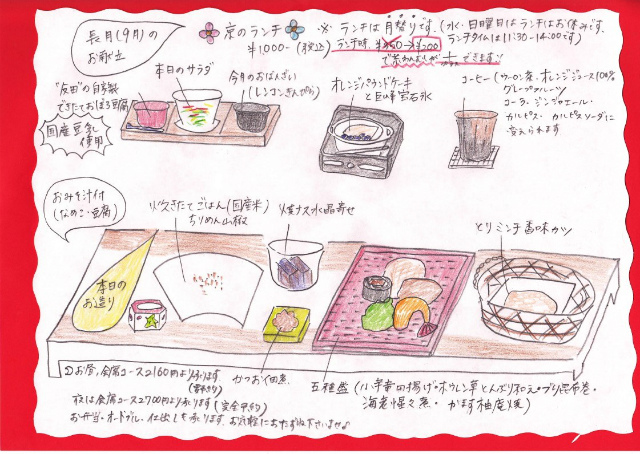 長月(9月)の
お献立
京のランチ
¥1000-(税込)
※ランチは月替りです。(水・日曜日はランチはお休みです。
ランチタイムは11:30~14:00です)
ランチ時
→¥200
できます!!
"友田"の自家製
できたておぼろ豆腐
国産豆乳
使用
本日のサラダ
今月のおばんざい
(レンコンきんぴら)
オレンジパウンドケーキ
と巨峰宝石氷
コーヒー(ウーロン茶・オレンジジュース100%
グレープフルーツ
コーラ・ジンジャエール・
カルピス・カルピスソーダに
変えられます
おみそ汁付
(なめこ・豆腐)
炊きたてごはん(国産米)
ちりめん山椒
焼ナス水晶寄せ
とりミンチ香味カツ
本日の
お造り
かつお佃煮
五種盛(小芋唐揚げ・ホウレン草とんぶり和え・ブリ昆布巻・
海老煮・かます柚庵焼)
お昼、会席コース2160円より承ります。
(要予約)
夜は会席コース2700円より承ります(完全予約)
お弁当・オードブル・仕出しも承ります。お気軽におたずね下さいませ♪